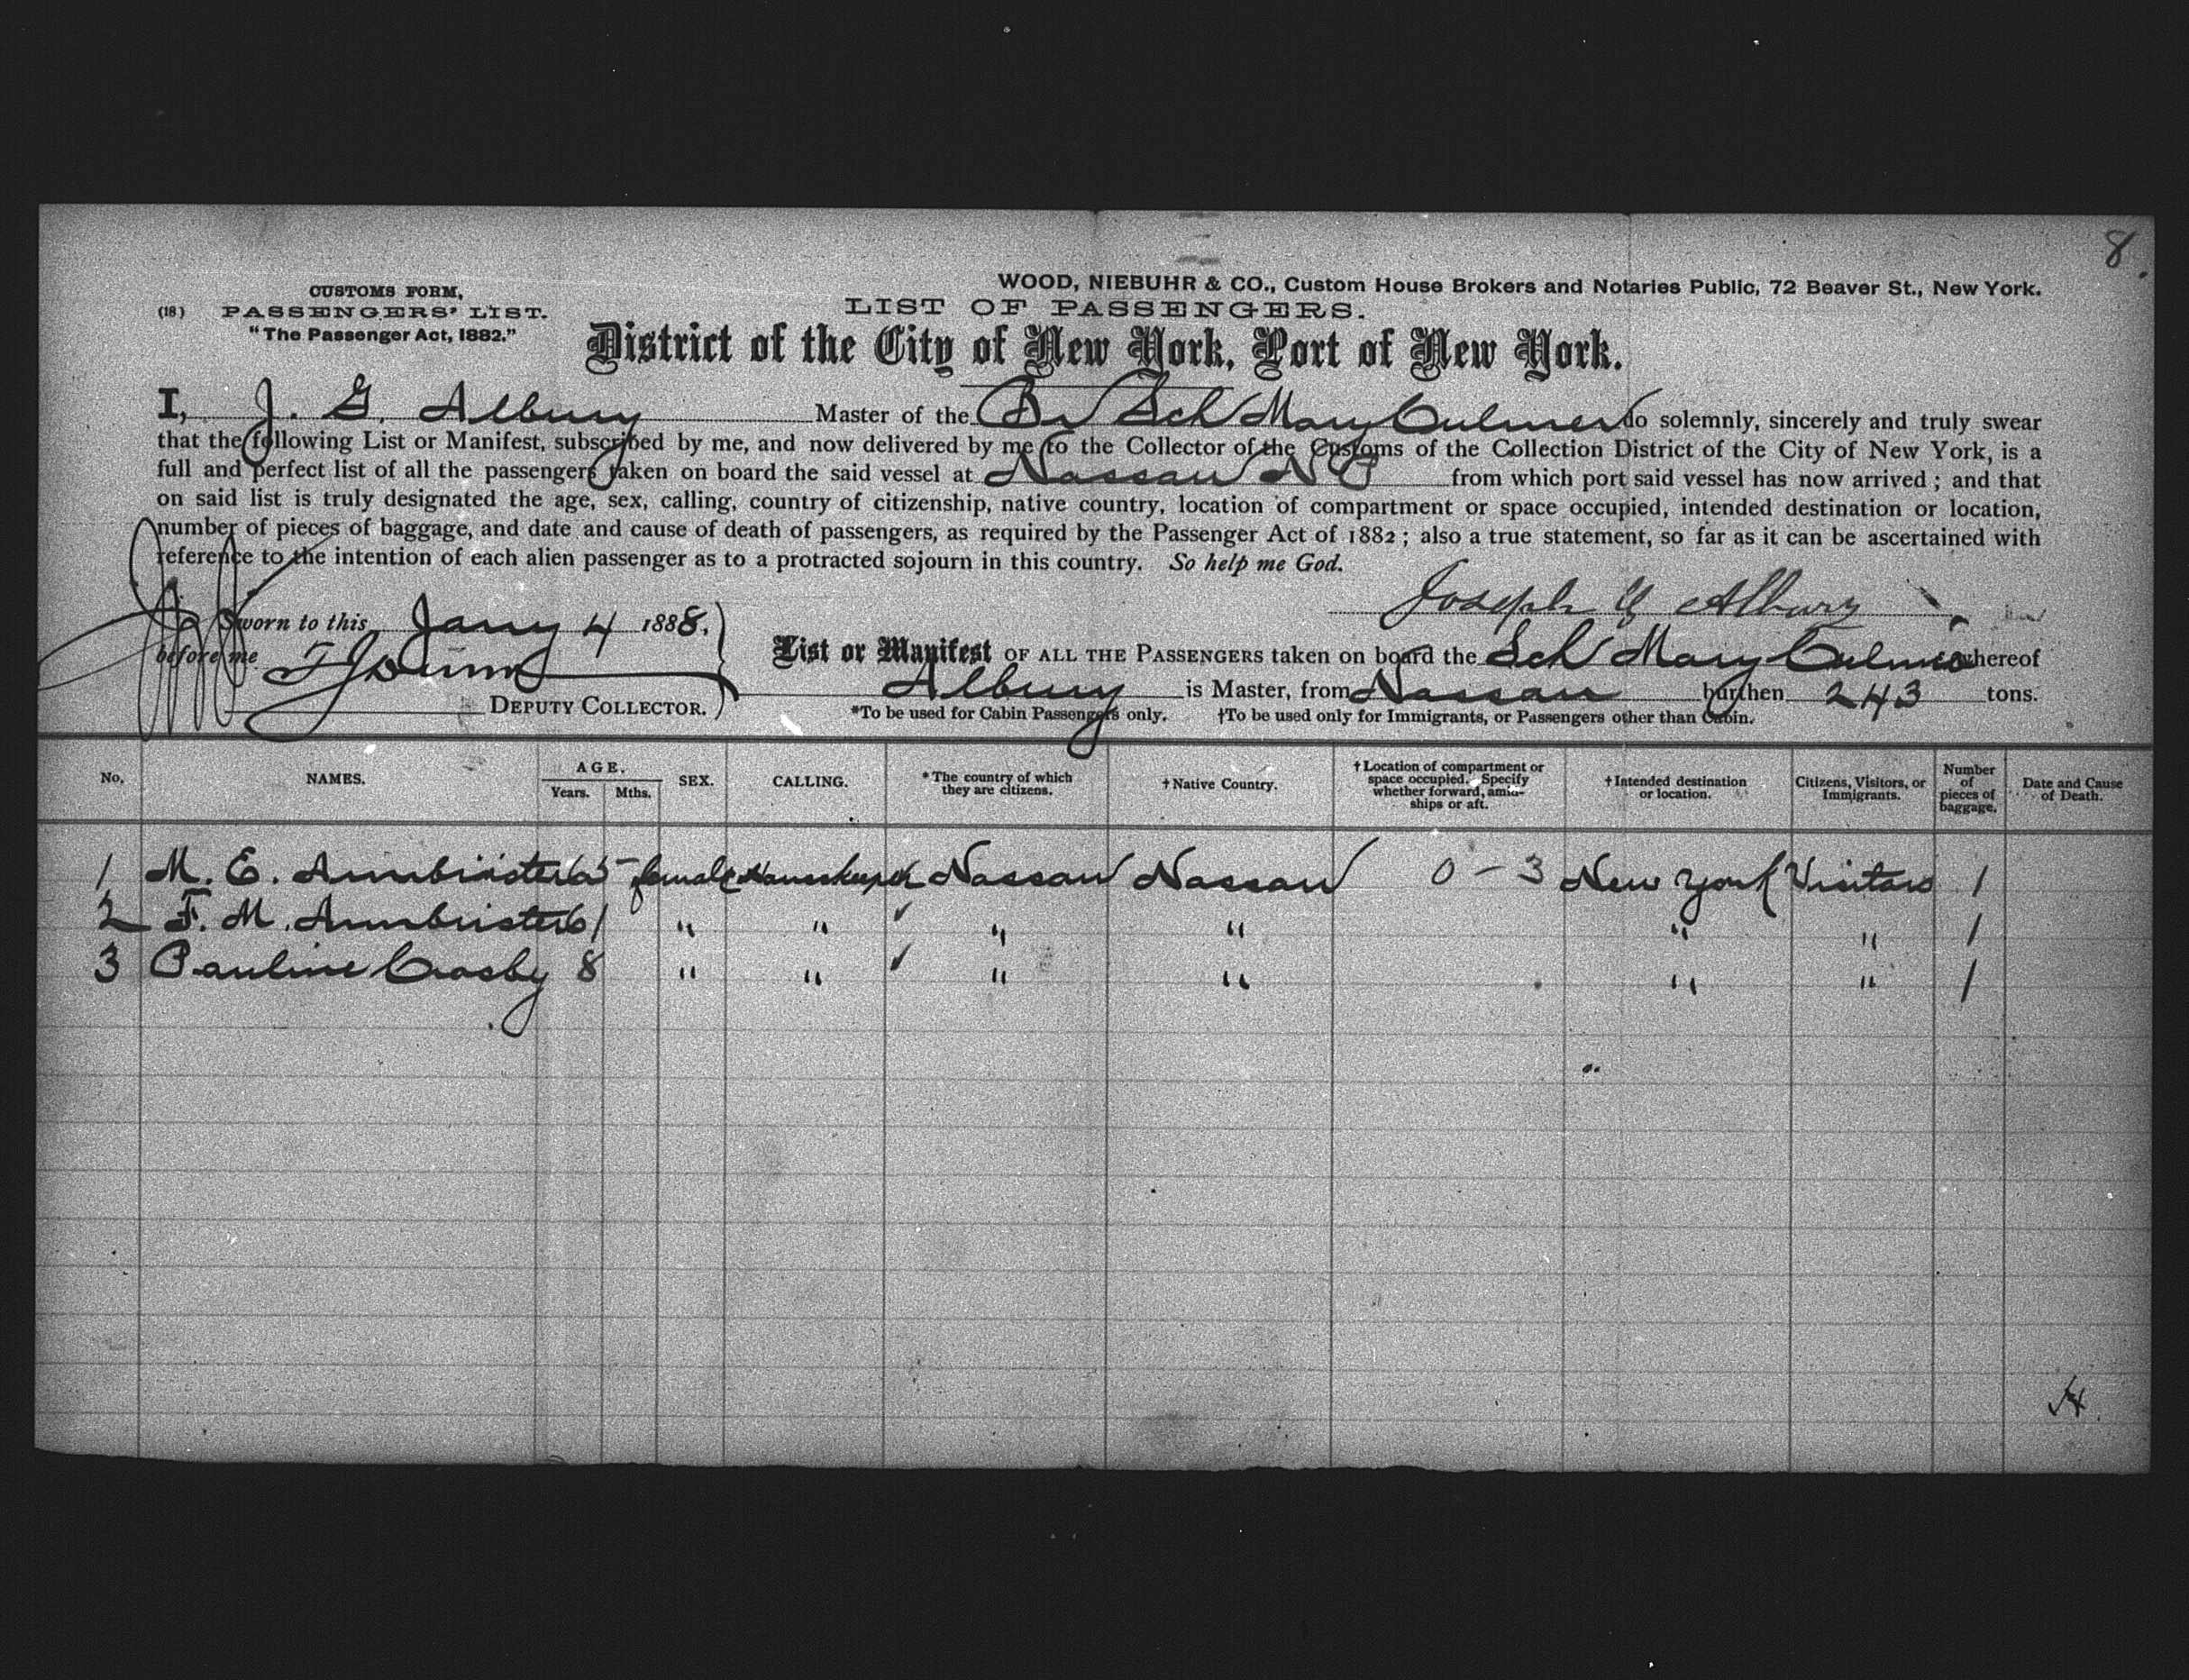 8.
WOOD, NIEBUHR & CO., Custom House Brokers and Notaries Public, 72 Beaver St., New York.
CUSTOMS FORM,
(18) PASSENGERS' LIST.
"The Passenger Act, 1882."
LIST OF PASSENGERS.
District of the City of New York, Port of New York.
I, J. G. Albury Master of the Br Sch Mary Culmer do solemnly, sincerely and truly swear
that the following List or Manifest, subscribed by me, and now delivered by me to the Collector of the Customs of the Collection District of the City of New York, is a
full and perfect list of all the passengers taken on board the said vessel at Nassau N P from which port said vessel has now arrived ; and that
on said list is truly designated the age, sex, calling, country of citizenship, native country, location of compartment or space occupied, intended destination or location,
number of pieces of baggage, and date and cause of death of passengers, as required by the Passenger Act of 1882 ; also a true statement, so far as it can be ascertained with
reference to the intention of each alien passenger as to a protracted sojourn in this country. So help me God.
Joseph G Albury
Sworn to this Jany 4 1888.
before me
DEPUTY COLLECTOR.
List or Manifest OF ALL THE PASSENGERS taken on board the Sch Mary Culmer whereof
Albury is Master, from Nassau burthen 243 tons.
*To be used for Cabin Passengers only. †To be used only for Immigrants, or Passengers other than Cabin.
No. NAMES. AGE. Years. Mths. SEX. CALLING. *The country of which they are citizens. †Native Country. †Location of compartment or space occupied. Specify whether forward, amid-ships or aft. †Intended destination or location. Citizens, Visitors, or Immigrants. Number of pieces of baggage. Date and Cause of Death.
1 M. E. Armbrister 65 female Housekeeper Nassau Nassau 0-3 New York Visitors 1
2 F. M. Armbrister 61 " " " " " " 1
3 Pauline Crosby 8 " " " " " " 1